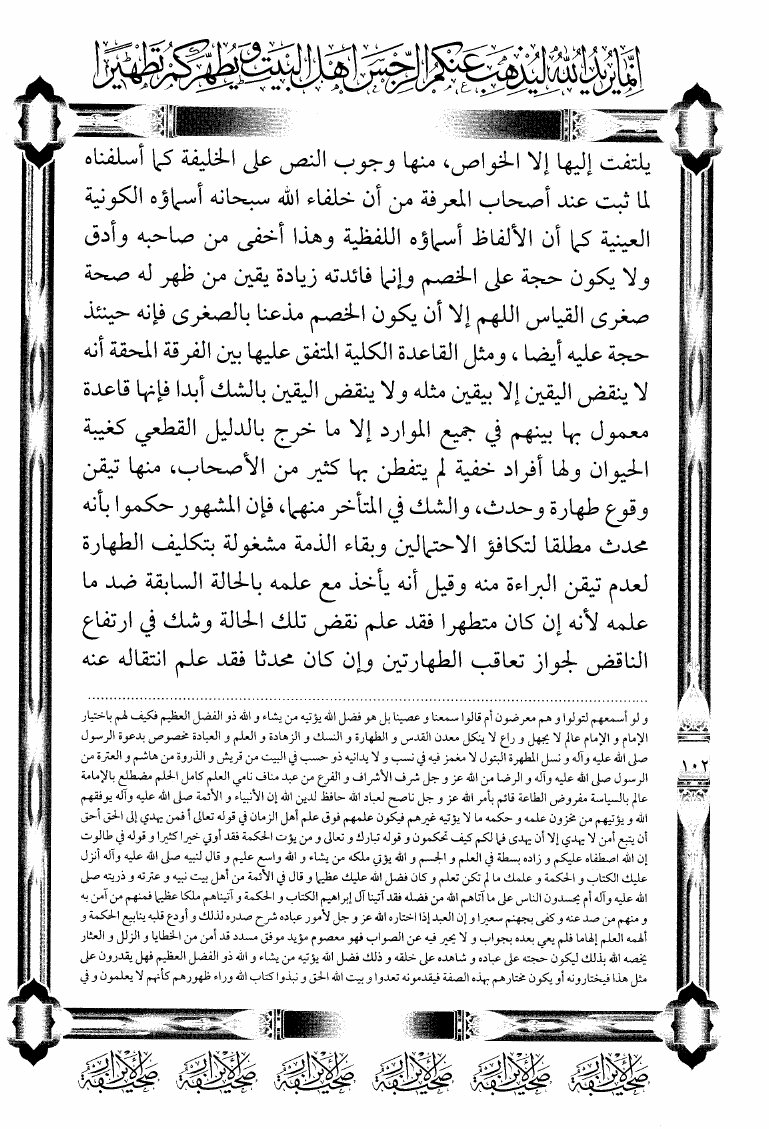 إنما يريد الله ليذهب عنكم الرجس أهل البيت ويطهركم تطهيرا
يلتفت إليها إلا الخواص، منها وجوب النص على الخليفة كما أسلفناه
لما ثبت عند أصحاب المعرفة من أن خلفاء الله سبحانه أسماؤه الكونية
العينية كما أن الألفاظ أسماؤه اللفظية وهذا أخفى من صاحبه وأدق
ولا يكون حجة على الخصم وإنما فائدته زيادة يقين من ظهر له صحة
صغرى القياس اللهم إلا أن يكون الخصم مذعنا بالصغرى فإنه حينئذ
حجة عليه أيضا ، ومثل القاعدة الكلية المتفق عليها بين الفرقة المحقة أنه
لا ينقض اليقين إلا بيقين مثله ولا ينقض اليقين بالشك أبدا فإنها قاعدة
معمول بها بينهم في جميع الموارد إلا ما خرج بالدليل القطعي كغيبة
الحيوان ولها أفراد خفية لم يتفطن بها كثير من الأصحاب، منها تيقن
وقوع طهارة وحدث، والشك في المتأخر منهما، فإن المشهور حكموا بأنه
محدث مطلقا لتكافؤ الاحتمالين وبقاء الذمة مشغولة بتكليف الطهارة
لعدم تيقن البراءة منه وقيل أنه يأخذ مع علمه بالحالة السابقة ضد ما
علمه لأنه إن كان متطهرا فقد علم نقض تلك الحالة وشك في ارتفاع
الناقض لجواز تعاقب الطهارتين وإن كان محدثا فقد علم انتقاله عنه
و لو أسمعهم لتولوا و هم معرضون أم قالوا سمعنا و عصينا بل هو فضل الله يؤتيه من يشاء و الله ذو الفضل العظيم فكيف لهم باختيار
الإمام و الإمام عالم لا يجهل و راع لا ينكل معدن القدس و الطهارة و النسك و الزهادة و العلم و العبادة مخصوص بدعوة الرسول
صلى الله عليه وآله و نسل المطهرة البتول لا مغمز فيه في نسب و لا يدانيه ذو حسب في البيت من قريش و الذروة من هاشم و العترة من
الرسول صلى الله عليه وآله و الرضا من الله عز و جل شرف الأشراف و الفرع من عبد مناف نامي العلم كامل الحلم مضطلع بالإمامة
عالم بالسياسة مفروض الطاعة قائم بأمر الله عز و جل ناصح لعباد الله حافظ لدين الله إن الأنبياء و الأئمة صلى الله عليه وآله يوفقهم
الله و يؤتيهم من مخزون علمه و حكمه ما لا يؤتيه غيرهم فيكون علمهم فوق علم أهل الزمان في قوله تعالى أ فمن يهدي إلى الحق أحق
أن يتبع أمن لا يهدي إلا أن يهدى فما لكم كيف تحكمون و قوله تبارك و تعالى و من يؤت الحكمة فقد أوتي خيرا كثيرا و قوله في طالوت
إن الله اصطفاه عليكم و زاده بسطة في العلم و الجسم و الله يؤتي ملكه من يشاء و الله واسع عليم و قال لنبيه صلى الله عليه وآله أنزل
عليك الكتاب و الحكمة و علمك ما لم تكن تعلم و كان فضل الله عليك عظيما و قال في الأئمة من أهل بيت نبيه و عترته و ذريته صلى
الله عليه وآله أم يحسدون الناس على ما آتاهم الله من فضله فقد آتينا آل إبراهيم الكتاب و الحكمة و آتيناهم ملكا عظيما فمنهم من آمن به
و منهم من صد عنه و كفى بجهنم سعيرا و إن العبد إذا اختاره الله عز و جل لأمور عباده شرح صدره لذلك و أودع قلبه ينابيع الحكمة و
ألهمه العلم إلهاما فلم يعي بعده بجواب و لا يحير فيه عن الصواب فهو معصوم مؤيد موفق مسدد قد أمن من الخطايا و الزلل و العثار
يخصه الله بذلك ليكون حجته على عباده و شاهده على خلقه و ذلك فضل الله يؤتيه من يشاء و الله ذو الفضل العظيم فهل يقدرون على
مثل هذا فيختارونه أو يكون مختارهم بهذه الصفة فيقدمونه تعدوا و بيت الله الحق و نبذوا كتاب الله وراء ظهورهم كأنهم لا يعلمون و في
١٠٢
صحيفة الأبرار صحيفة الأبرار صحيفة الأبرار صحيفة الأبرار صحيفة الأبرار صحيفة الأبرار